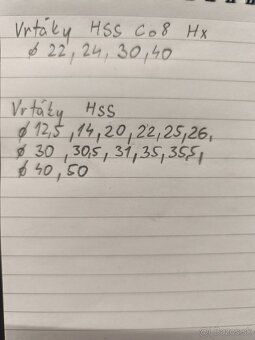 Vrtáky HSS Co8 Hx
ø 22, 24, 30, 40
Vrtáky HSS
ø 12,5, 14, 20, 22, 25, 26,
ø 30, 30,5, 31, 35, 35,5,
ø 40, 50